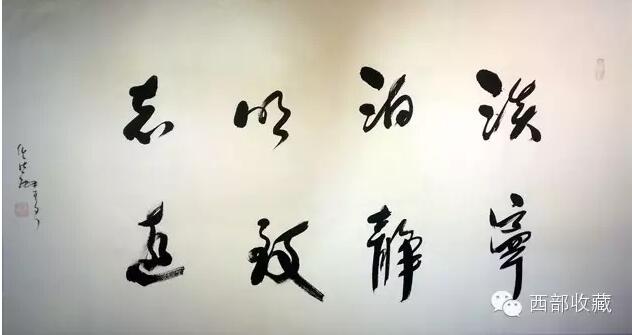 淡泊明志
寧静致遠
西部收藏